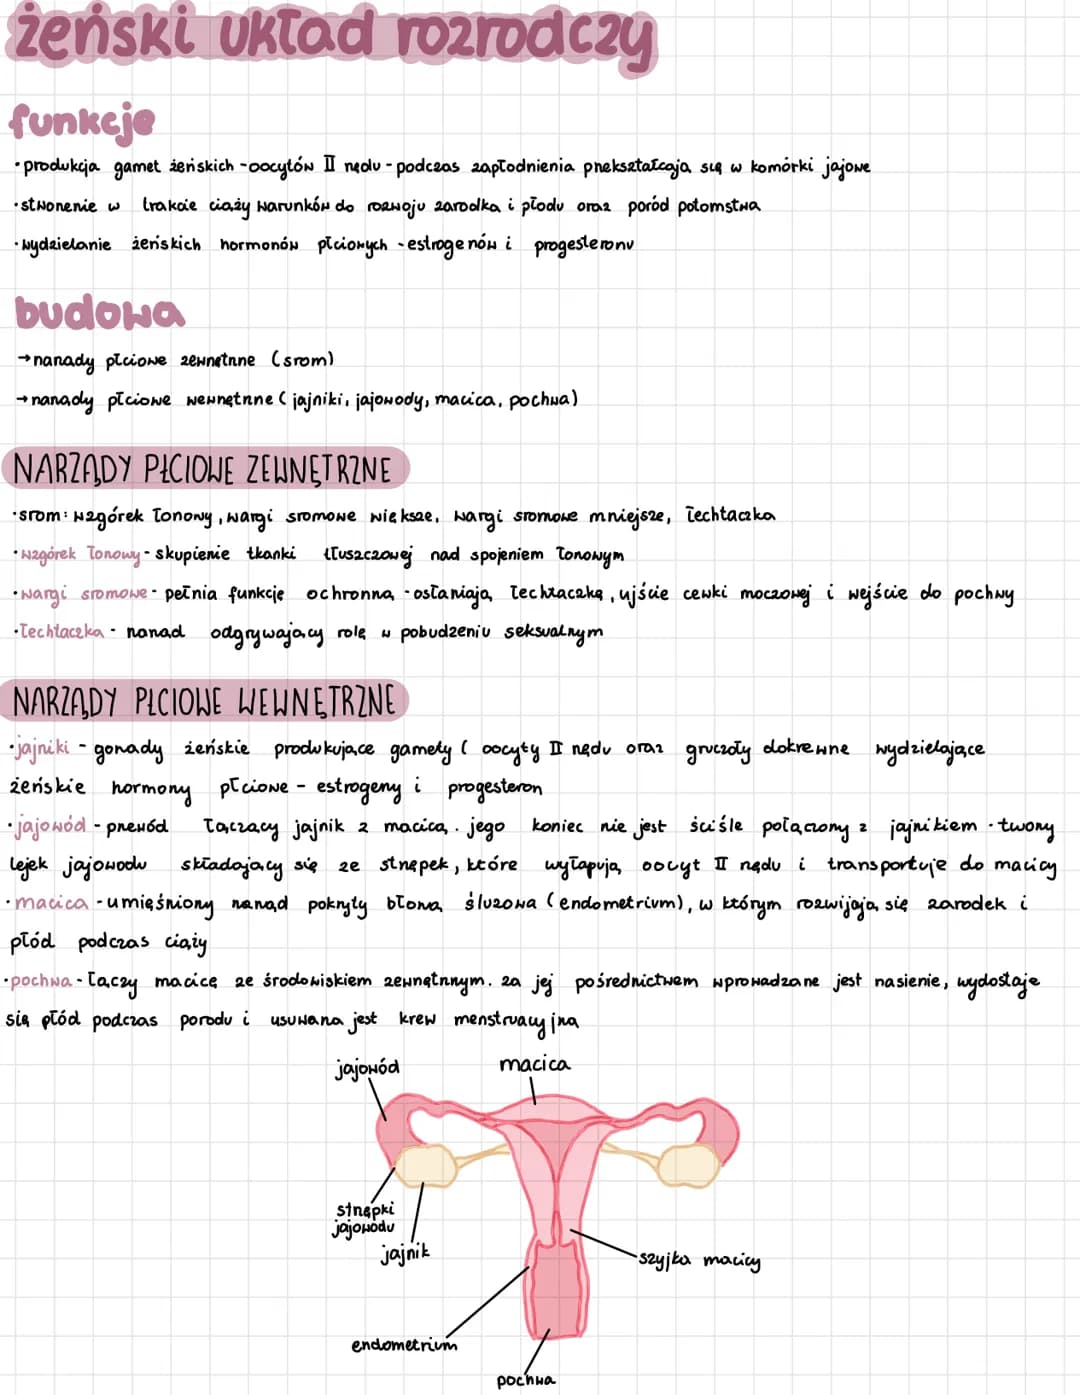 żeński układ rozrodczy
funkcje
·produkcja gamet żeńskich - oocytów II rzędu - podczas zapłodnienia przekształcają się w komórki jajowe
·stworzenie w trakcie ciąży warunków do rozwoju zarodka i płodu oraz poród potomstwa
·wydzielanie żeńskich hormonów płciowych - estrogenów i progesteronu
budowa
→narządy płciowe zewnętrzne (srom)
→narządy płciowe wewnętrzne (jajniki, jajowody, macica, pochwa)
NARZĄDY PŁCIOWE ZEWNĘTRZNE
·srom: wzgórek łonowy, wargi sromowe większe, wargi sromowe mniejsze, łechtaczka
·wzgórek łonowy - skupienie tkanki tłuszczowej nad spojeniem łonowym
·wargi sromowe - pełnią funkcję ochronną - osłaniają łechtaczkę, ujście cewki moczowej i wejście do pochwy
·łechtaczka - narząd odgrywający rolę w pobudzeniu seksualnym
NARZĄDY PŁCIOWE WEWNĘTRZNE
·jajniki - gonady żeńskie produkujące gamety (oocyty II rzędu oraz gruczoły dokrewne wydzielające
żeńskie hormony płciowe - estrogeny i progesteron
·jajowód - przewód łączący jajnik z macicą. jego koniec nie jest ściśle połączony z jajnikiem - tworzy
lejek jajowodu składający się ze strzępek, które wyłapują oocyt II rzędu i transportuje do macicy
·macica - umięśniony narząd pokryty błoną śluzową (endometrium), w którym rozwijają się zarodek i
płód podczas ciąży
·pochwa - łączy macicę ze środowiskiem zewnętrznym. za jej pośrednictwem wprowadzane jest nasienie, wydostaje
się płód podczas porodu i usuwana jest krew menstruacyjna
jajowód
macica
strzępki
jajowodu
jajnik
szyjka macicy
endometrium
pochwa